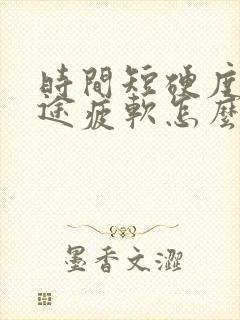 時間短硬度
途疲軟怎麼
墨香文澀